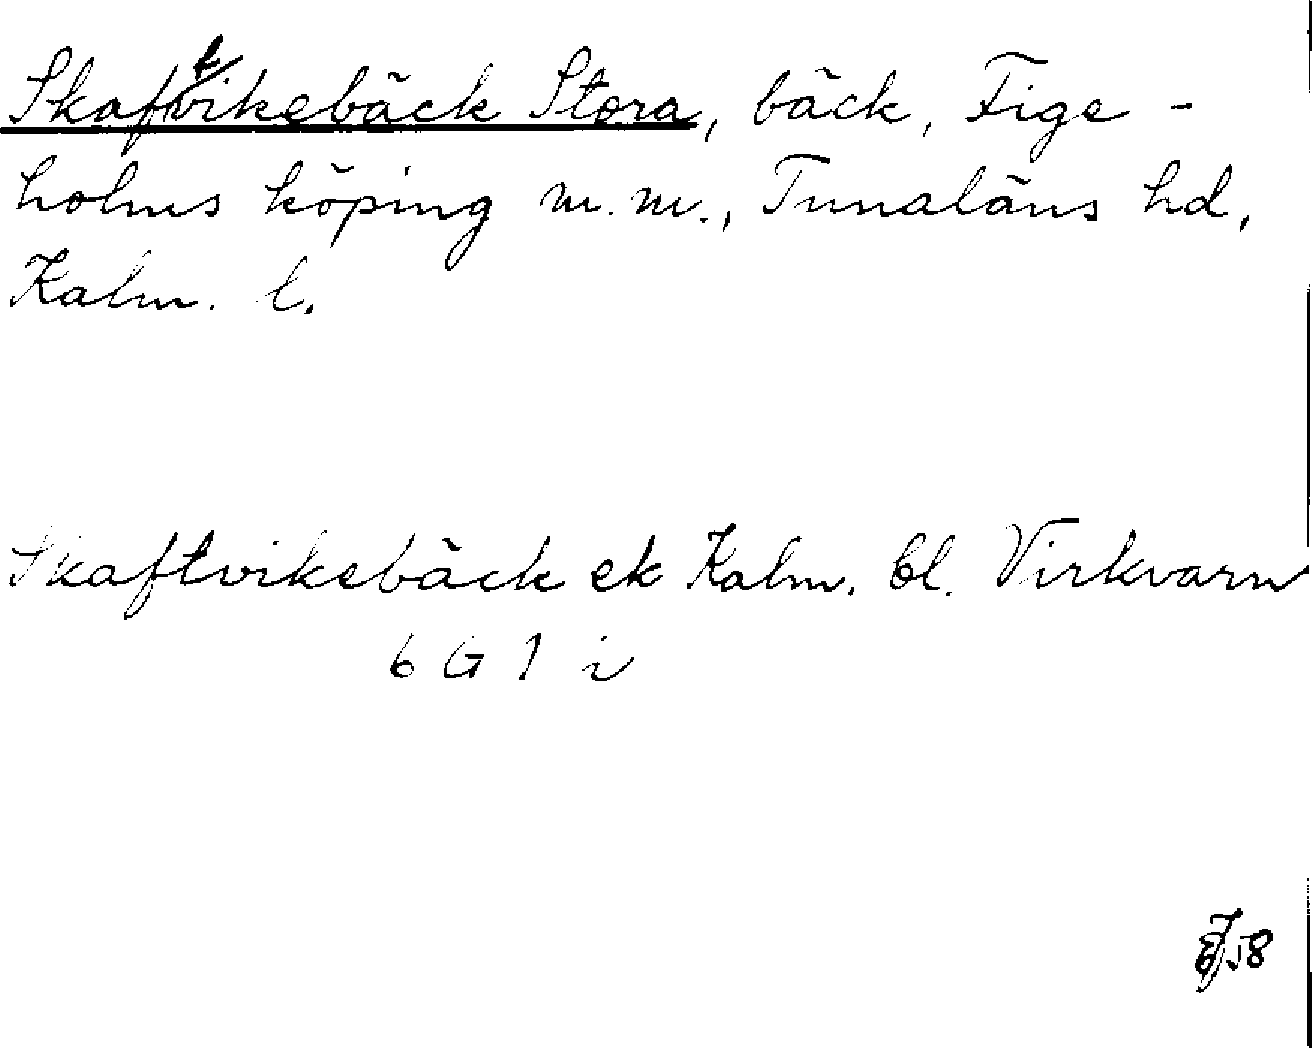 Skaftvikebäck Stora, bäck, Fige-
holms köping m.m., Tunaläns hd,
Kalm. l.
Skaftvikebäck ek Kalm. bl. Virkvarn
6 G 1 i
58